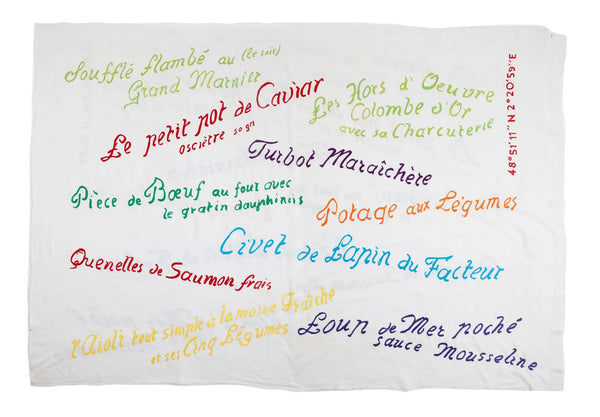 Soufflé flambé au (le soir)
Grand Marnier
Le petit pot de Caviar
osciètre 50 gr
Les Hors d'Oeuvre
Colombe d'Or
avec sa Charcuterie
48°51'11"N 2°20'59"E
Turbot Maraîchère
Pièce de Bœuf au four avec
le gratin dauphinois
Potage aux Légumes
Civet de Lapin du Facteur
Quenelles de Saumon frais
l'Aïoli tout simple à la morue Fraîche
et ses Cinq Légumes
Loup de Mer poché
sauce Mousseline